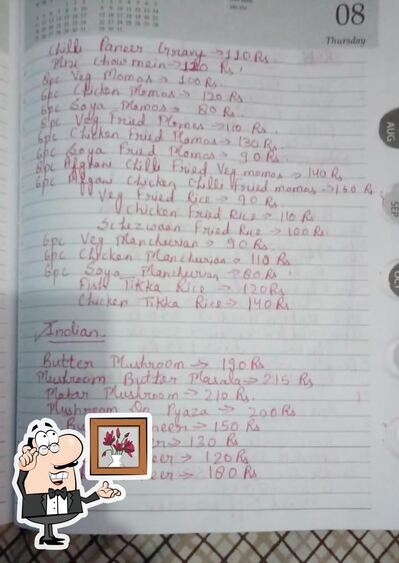 08
Thursday
Chilli Paneer Gravy → 110 Rs
Mix Chowmein → 120 Rs
8pc Veg Momos → 100 Rs.
6pc Chicken Momos → 120 Rs
6pc Soya Momos → 80 Rs.
6pc Veg Fried Momos → 110 Rs
6pc Chicken Fried Momos → 130 Rs
6pc Soya Fried Momos → 90 Rs.
6pc Afghani Chilli Fried Veg momos → 140 Rs
6pc Afgani Chicken Chilli Fried momos → 160 Rs
Veg Fried Rice → 90 Rs
Chicken Fried Rice → 110 Rs
Schzwaan Fried Rice → 100 Rs.
6pc Veg Manchurian → 90 Rs.
6pc Chicken Manchurian → 110 Rs
6pc Soya Manchurian → 80 Rs
Fish Tikka Rice → 120 Rs
Chicken Tikka Rice → 140 Rs
Indian
Butter Mushroom → 190 Rs
Mushroom Butter Masala → 215 Rs
Matar Mushroom → 210 Rs.
Mushroom Do Pyaza → 200 Rs
→ 150 Rs
→ 130 Rs
→ 120 Rs
→ 180 Rs
AUG
SEP
OCT